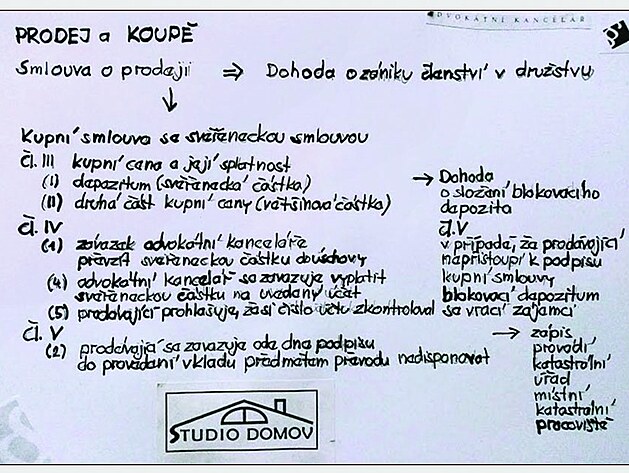 ADVOKÁTNÍ KANCELÁŘ
PRODEJ a KOUPĚ
Smlouva o prodeji ⇒ Dohoda o zániku členství v družstvu
↓
Kupní smlouva se svěřeneckou smlouvou
čl. III kupní cena a její splatnost
(I) depozitum (svěřenecká částka)
(II) druhá část kupní ceny (většinová částka)
čl. IV
(1) závazek advokátní kanceláře
převzít svěřeneckou částku do úschovy
(4) advokátní kancelář se zavazuje vyplatit
svěřeneckou částku na uvedený účet
(5) prodávající prohlašuje, že si číslo účtu zkontroloval
čl. V
(2) prodávající se zavazuje ode dne podpisu
do provedení vkladu předmětem převodu nedisponovat
→ Dohoda
o složení blokovacího
depozita
čl. V
v případě, že prodávající
nepřistoupí k podpisu
kupní smlouvy
blokovací depozitum
se vrací zájemci
→ zápis
provádí
katastrální
úřad
místní
katastrální
pracoviště
STUDIO DOMOV